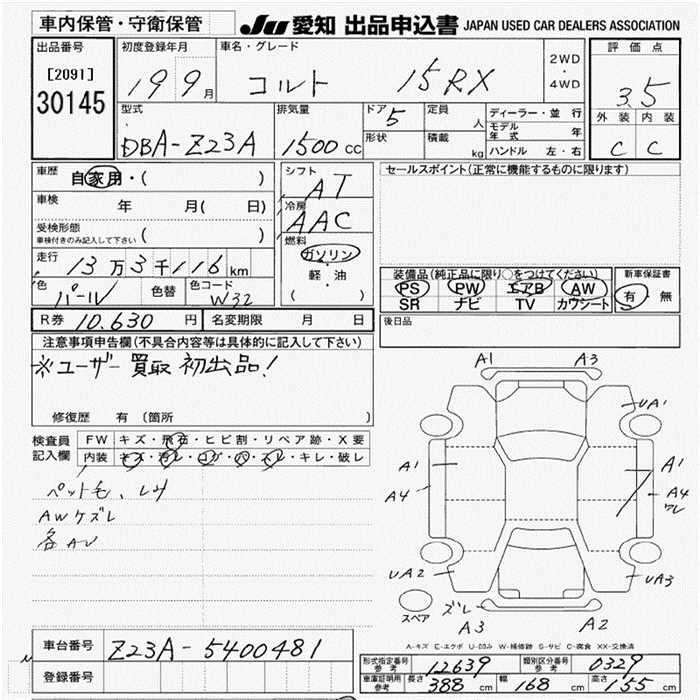 車内保管・守衛保管
JU 愛知 出品申込書 JAPAN USED CAR DEALERS ASSOCIATION
出品番号
[2091]
30145
初度登録年月
19 9月
車名・グレード
コルト 15RX
2WD
・
4WD
評価点
3.5
外装 内装
C C
型式
DBA-Z23A
排気量
1500 CC
ドア
5
形状
定員
人
積載
kg
ディーラー・並行
モデル年式 年
ハンドル 左・右
車歴
自家用・( )
車検
年 月( 日)
受検形態
車検付きのみ記入して下さい ( )
走行
13万3千116km
色
パール
色替
色コード
W32
シフト
AT
冷房
AAC
燃料
ガソリン
軽・油
( )
セールスポイント(正常に機能するものに限ります)
装備品(純正品に限り○をつけてください)
PS PW エアB AW
SR ナビ TV カワシート
新車保証書
有・無
R券 10.630円
名変期限 月 日
後日品
注意事項申告欄(不具合内容等は具体的に記入して下さい)
※ユーザー買取 初出品!
修復歴 有 (箇所 )
検査員
記入欄
FW キズ・飛石・ヒビ割・リペア跡・X要
内装 キズ・汚レ・コゲ・穴・スレ・キレ・破レ
ペット毛、しみ
AWケズレ
各AU
A1 A3
UA1
A1
A4
A1
A4
ワレ
UA2
UA3
スペア
ズレ
A3 A2
A-キズ E-エクボ U-凹み W-補修跡 S-サビ C-腐食 XX-交換済
車台番号 Z23A-5400481
登録番号
型式指定番号
参考
12639
類別区分番号
参考
0329
車庫証明用
参考
長さ 388cm 幅 168cm 高さ 155cm